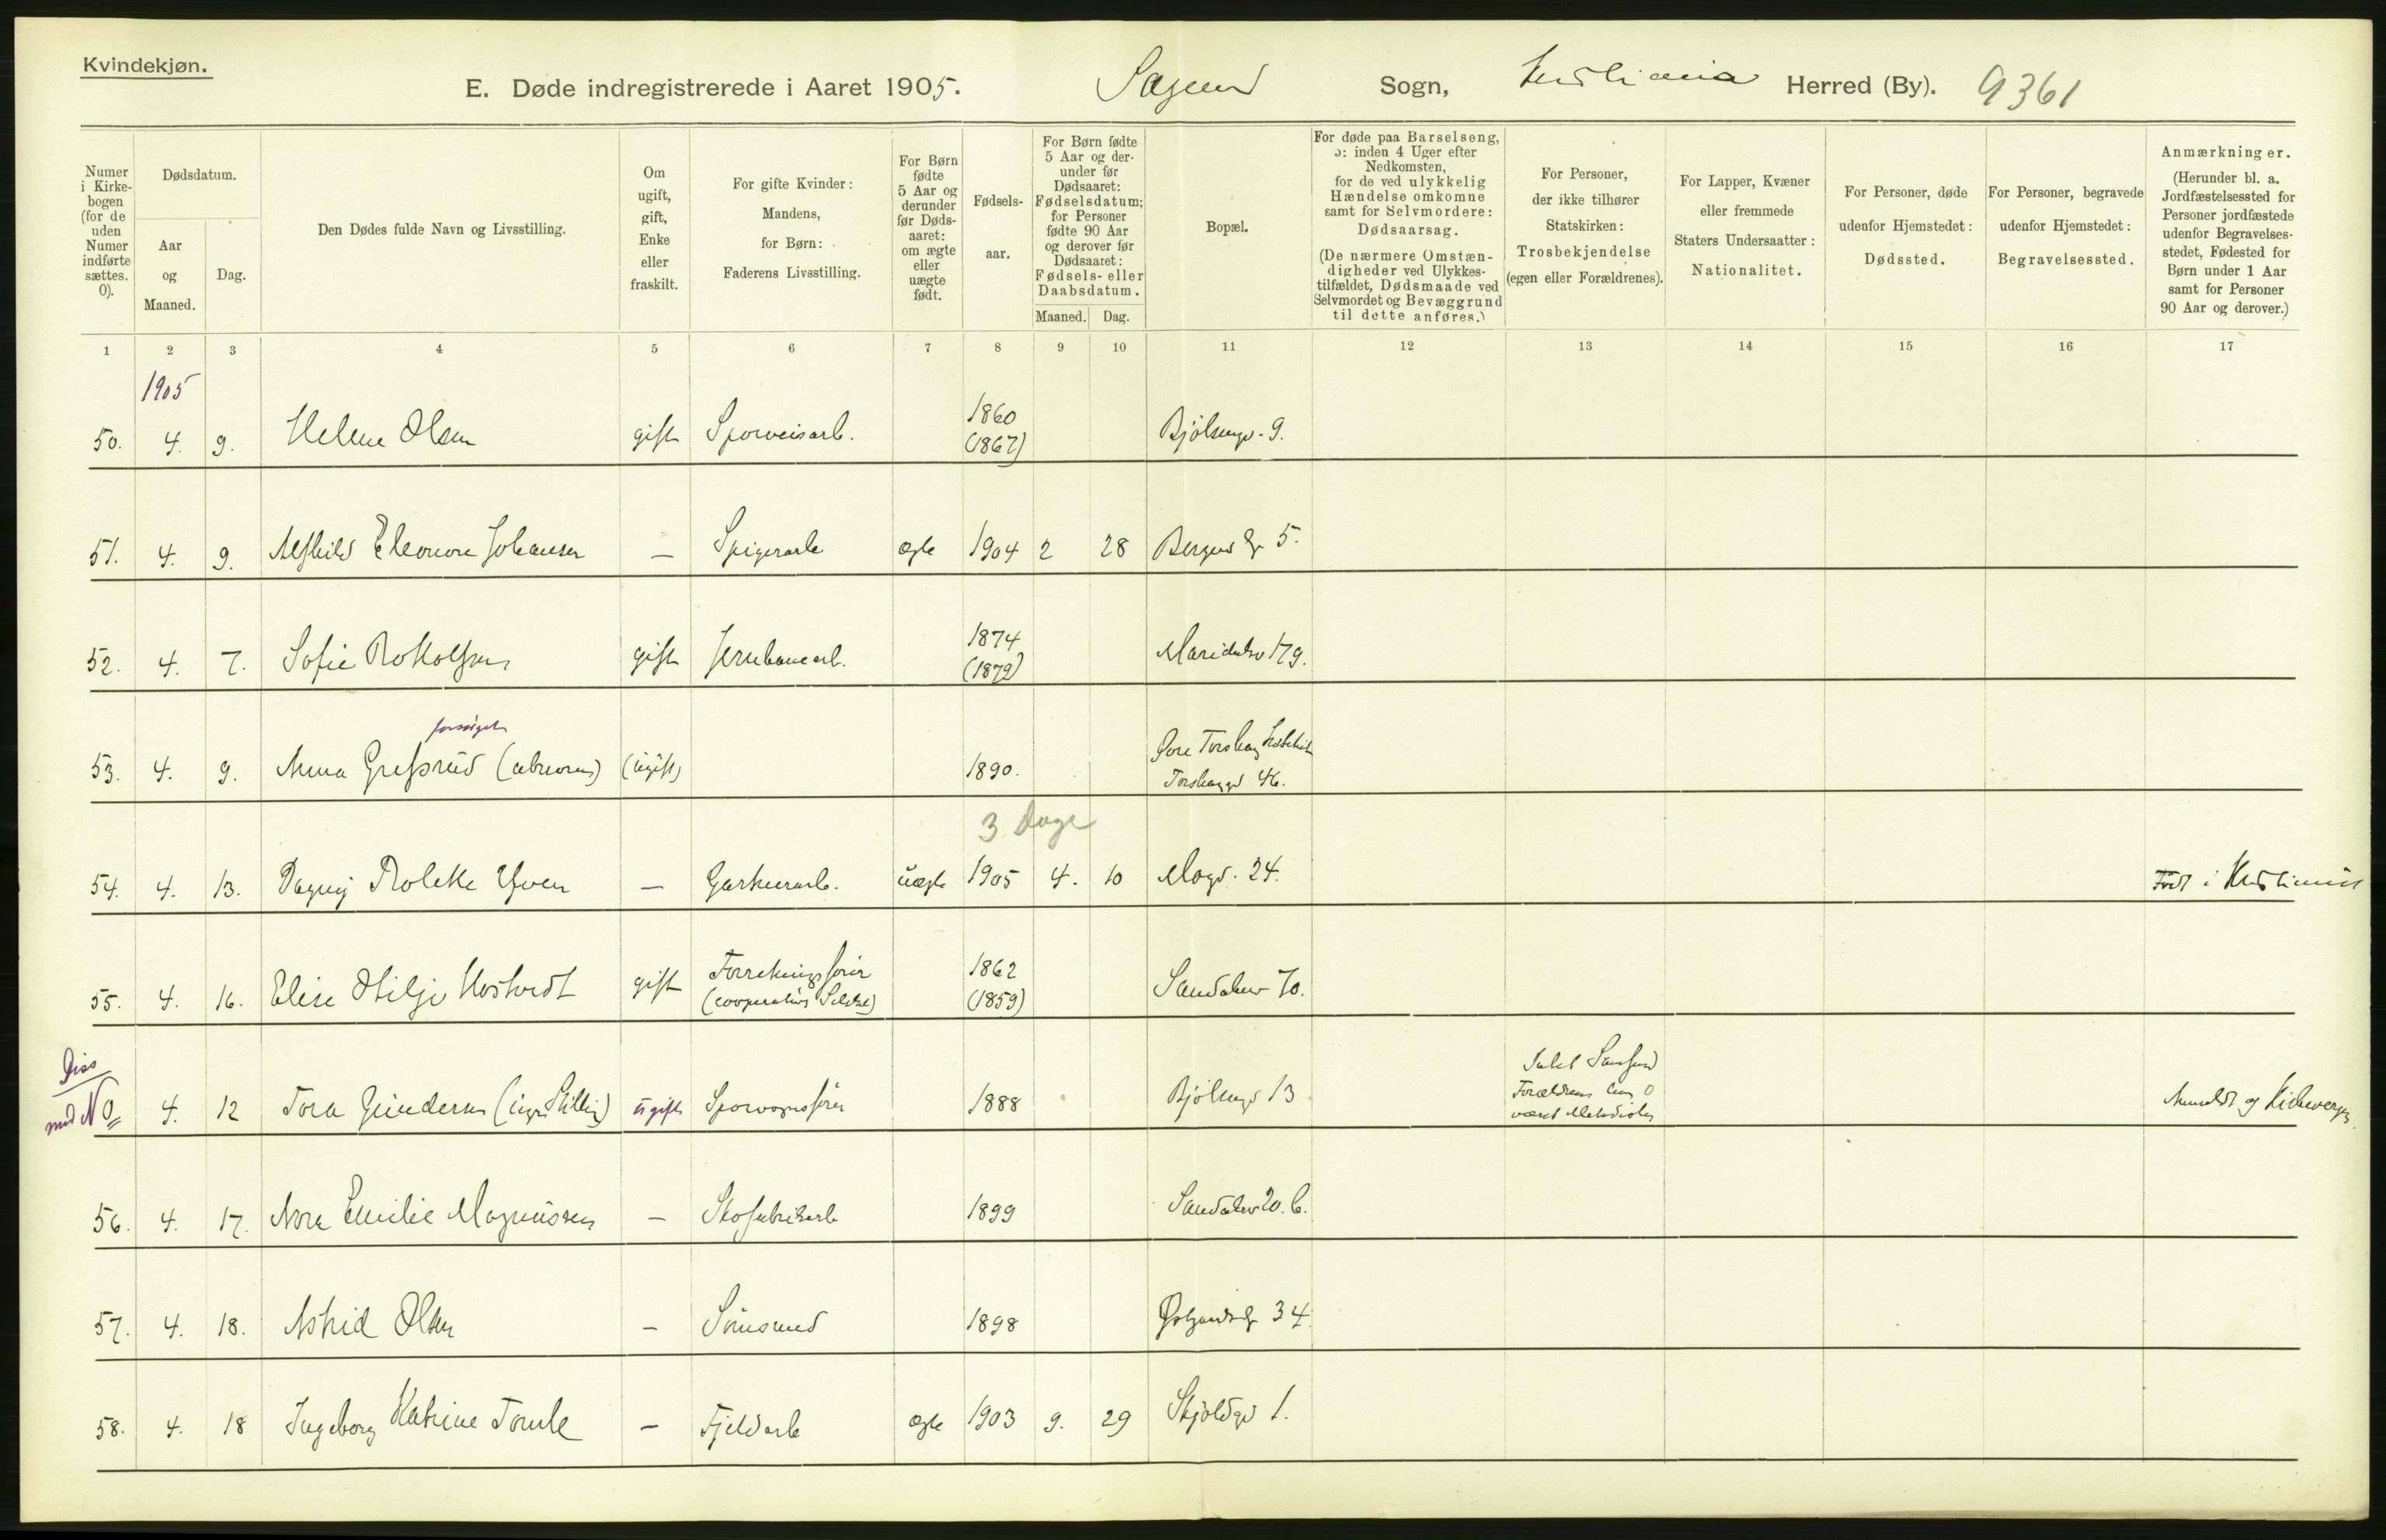 Kvindekjøn.
E. Døde indregistrerede i Aaret 1905. Sagene Sogn, Kristiania Herred (By). 9361
Numer i Kirkebogen (for de uden Numer indførte sættes. 0).
Dødsdatum.
Aar og Maaned.
Dag.
Den Dødes fulde Navn og Livsstilling.
Om ugift, gift, Enke eller fraskilt.
For gifte Kvinder: Mandens, for Børn: Faderens Livsstilling.
For Børn fødte 5 Aar og derunder før Dødsaaret: om ægte eller uægte født.
Fødselsaar.
For Børn fødte 5 Aar og derunder før Dødsaaret: Fødselsdatum; for Personer fødte 90 Aar og derover før Dødsaaret: Fødsels- eller Daabsdatum.
Maaned. Dag.
Bopæl.
For døde paa Barselseng, ɔ: inden 4 Uger efter Nedkomsten, for de ved ulykkelig Hændelse omkomne samt for Selvmordere: Dødsaarsag.
(De nærmere Omstændigheder ved Ulykkestilfældet, Dødsmaade ved Selvmordet og Bevæggrund til dette anføres.)
For Personer, der ikke tilhører Statskirken: Trosbekjendelse (egen eller Forældrenes).
For Lapper, Kvæner eller fremmede Staters Undersaatter: Nationalitet.
For Personer, døde udenfor Hjemstedet: Dødssted.
For Personer, begravede udenfor Hjemstedet: Begravelsessted.
Anmærkninger.
(Herunder bl. a. Jordfæstelsessted for Personer jordfæstede udenfor Begravelsesstedet, Fødested for Børn under 1 Aar samt for Personer 90 Aar og derover.)
1 2 3 4 5 6 7 8 9 10 11 12 13 14 15 16 17
1905
50. 4. 9. Helene Olsen gift Sporveisarb. 1860 (1867) Bjølsengd. 9.
51. 4. 9. Alfhild Eleonore Johansen — Spigerarb ægte 1904 2 28 Bergens g. 5.
52. 4. 7. Sofie Rottolfsen gift Jernbanearb. 1874 (1879) Maridalsv 179.
forsørget
53. 4. 9. Anna Grefsrud (ugift) 1890. Torshaug
Torshauggd 46.
3 Dage
54. 4. 13. Dagny Yven — Garverarb. uægte 1905 4. 10 Mogd. 24. Født i Kristiania
55. 4. 16. Elise Otilje gift Forretningsfører
1862 (1859) Sandakerv 70.
Diss
med No 0 4. 12 Tora Gundersen (ingen Stilling) ugift Sporvognsfører 1888 Bjølsengd 13
Intet Samfund
Forældrene
været Metodister
Anmeldt af Kirkevergen.
56. 4. 17. Nora Emilie Magnussen — Skofabrikarb 1899 Sandakerv 20. b.
57. 4. 18. Astrid Olsen — Sømsmed 1898 34
58. 4. 18 Ingeborg Katrine Tomle — Fjeldarb ægte 1903 9. 29 Skjoldgd 1.